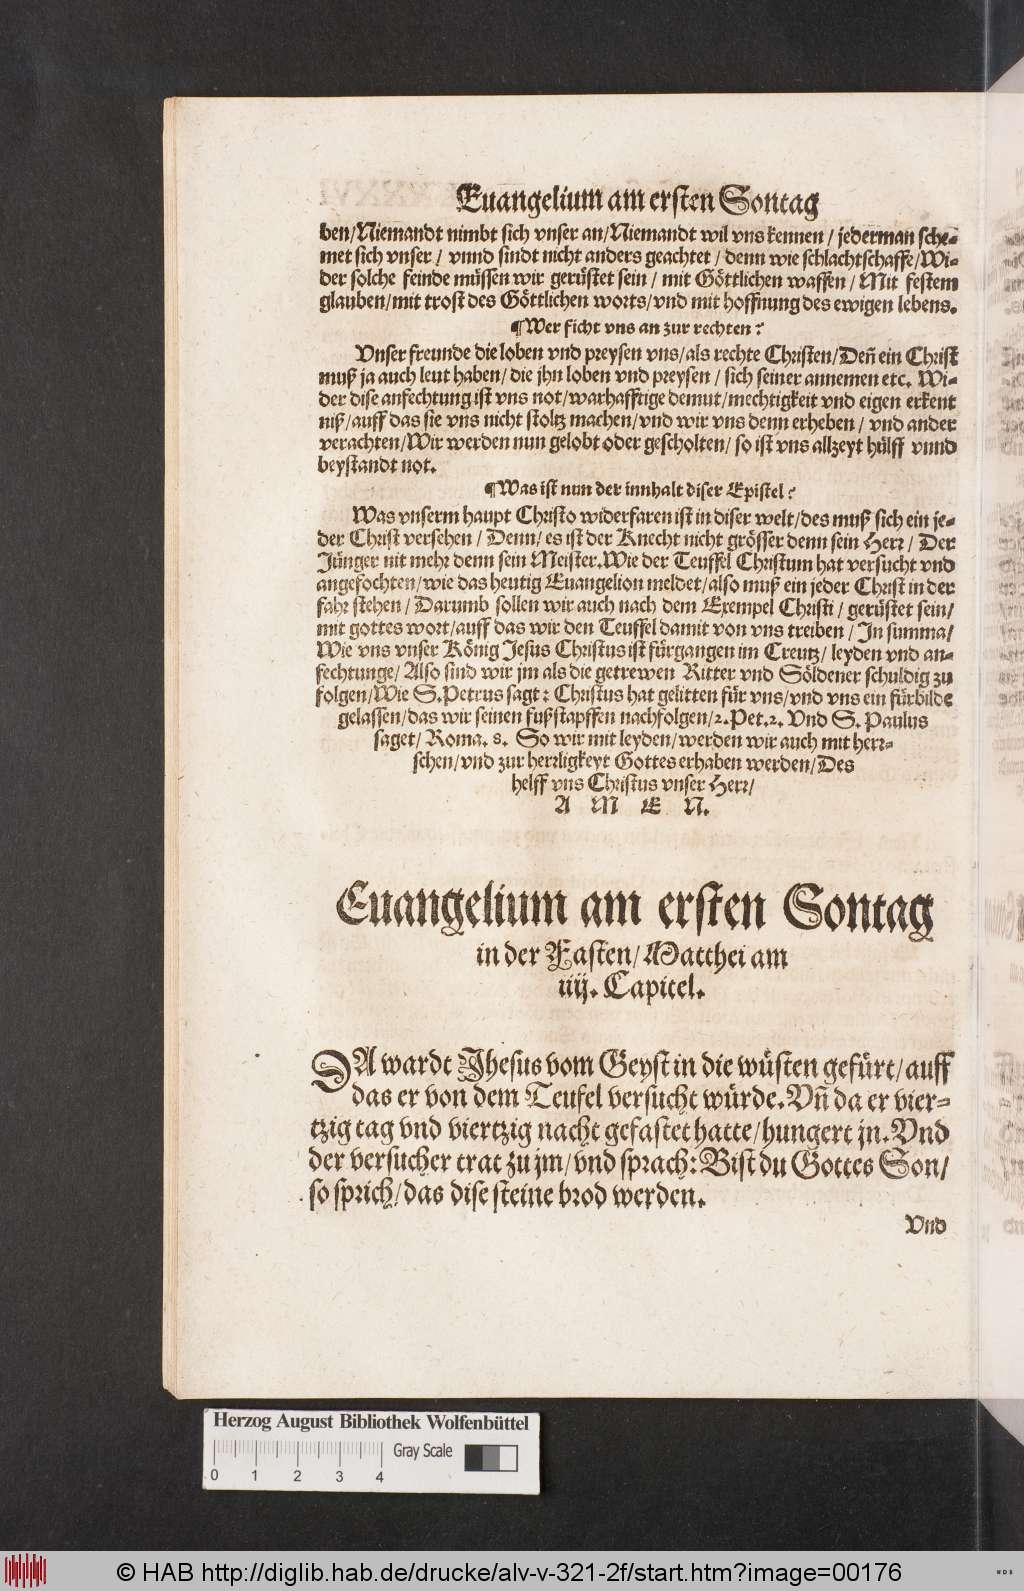 Euangelium am ersten Sontag
ben/Niemandt nimbt sich vnser an/Niemandt wil vns kennen / jederman sche-
met sich vnser / vnnd sindt nicht anders geachtet / denn wie schlachtschaffe/Wi-
der solche feinde müssen wir gerüstet sein / mit Göttlichen waffen / Mit festem
glauben/mit trost des Göttlichen worts/vnd mit hoffnung des ewigen lebens.
¶Wer ficht vns an zur rechten?
Vnser freunde die loben vnd preysen vns/als rechte Christen/Den̄ ein Christ
muß ja auch leut haben/ die jhn loben vnd preysen / sich seiner annemen etc. Wi-
der dise anfechtung ist vns not/warhafftige demut/mechtigkeit vnd eigen erkent
niß/auff das sie vns nicht stoltz machen/vnd wir vns denn erheben / vnd ander
verachten/Wir werden nun gelobt oder gescholten/ so ist vns allzeyt hülff vnnd
beystandt not.
¶Was ist nun der innhalt diser Epistel?
Was vnserm haupt Christo widerfaren ist in diser welt/des muß sich ein je-
der Christ versehen / Denn/ es ist der Knecht nicht grösser denn sein Herr / Der
Jünger nit mehr denn sein Meister.Wie der Teuffel Christum hat versucht vnd
angefochten/wie das heutig Euangelion meldet/also muß ein jeder Christ in der
fahr stehen / Darumb sollen wir auch nach dem Exempel Christi / gerüstet sein/
mit gottes wort/auff das wir den Teuffel damit von vns treiben / In summa/
Wie vns vnser König Jesus Christus ist fürgangen im Creutz/ leyden vnd an-
fechtunge/ Also sind wir jm als die getrewen Ritter vnd Söldener schuldig zu
folgen/Wie S.Petrus sagt: Christus hat gelitten für vns/vnd vns ein fürbilde
gelassen/das wir seinen fußstapffen nachfolgen/2.Pet.2. Vnd S. Paulus
saget/ Roma. 8. So wir mit leyden/werden wir auch mit herr-
schen/vnd zur herrligkeyt Gottes erhaben werden/Des
helff vns Christus vnser Herr/
A M E N.
Euangelium am ersten Sontag
in der Fasten/ Matthei am
iiij. Capitel.
DA wardt Jhesus vom Geyst in die wüsten gefürt/auff
das er von dem Teufel versucht würde.Vn̄ da er vier-
tzig tag vnd viertzig nacht gefastet hatte/hungert jn.Vnd
der versucher trat zu jm/vnd sprach: Bist du Gottes Son/
so sprich/das dise steine brod werden.
Vnd
Herzog August Bibliothek Wolfenbüttel
Gray Scale
0 1 2 3 4
© HAB http://diglib.hab.de/drucke/alv-v-321-2f/start.htm?image=00176